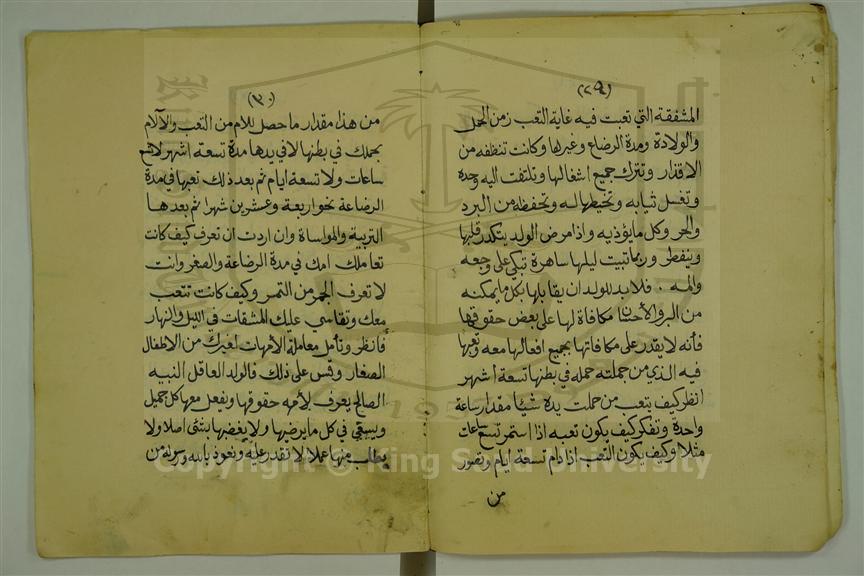 (٢٩)
المشفقة التي تعبت فيه غاية التعب زمن الحمل
والولادة ومدة الرضاع وغيرها وكانت تنظفه من
الاقذار وتترك جميع اشغالها وتلتفت اليه وحده
وتغسل ثيابه وتخيطها له وتحفظه من البرد
والحر وكل ما يؤذيه واذا مرض الولد يتكدر قلبها
وينفطر وربما تبيت ليلها ساهرة تبكي على وجعه
والمه . فلا بد للولد ان يقابلها بكل ما يمكنه
من البر والأحسان مكافاة لها على بعض حقوقها
فأنه لا يقدر على مكافاتها بجميع افعالها معه وتعبها
فيه الذي من جملته حمله في بطنها تسعة اشهر
انظر كيف يتعب من حملت يده شيئا مقدار ساعة
واحدة وتفكر كيف يكون تعبه اذا استمر تسع ساعات
مثلا وكيف يكون التعب اذا دام تسعة ايام وتصور
من
(٣٠)
من هذا مقدار ما حصل للام من التعب والآلام
بحملك في بطنها لا في يدها مدة تسعة اشهر لا تسع
ساعات ولا تسعة ايام ثم بعد ذلك تعبها في مدة
الرضاعة نحو اربعة وعشرين شهرا ثم بعدها
التربية والمواساة وان اردت ان تعرف كيف كانت
تعاملك امك في مدة الرضاعة والصغر وانت
لا تعرف الجمر من التمر وكيف كانت تتعب
معك وتقاسي عليك المشقات في الليل والنهار
فانظر وتأمل معاملة الأمهات لغيرك من الاطفال
الصغار وقس على ذلك فالولد العاقل النبيه
الصالح يعرف لأمه حقوقها ويفعل معها كل جميل
ويسعى في كل ما يرضيها ولا يغضبها بشئ اصلا ولا
يطلب منها عملا لا تقدر عليه ونعوذ بالله ورسوله من
Copyright © King Saud University